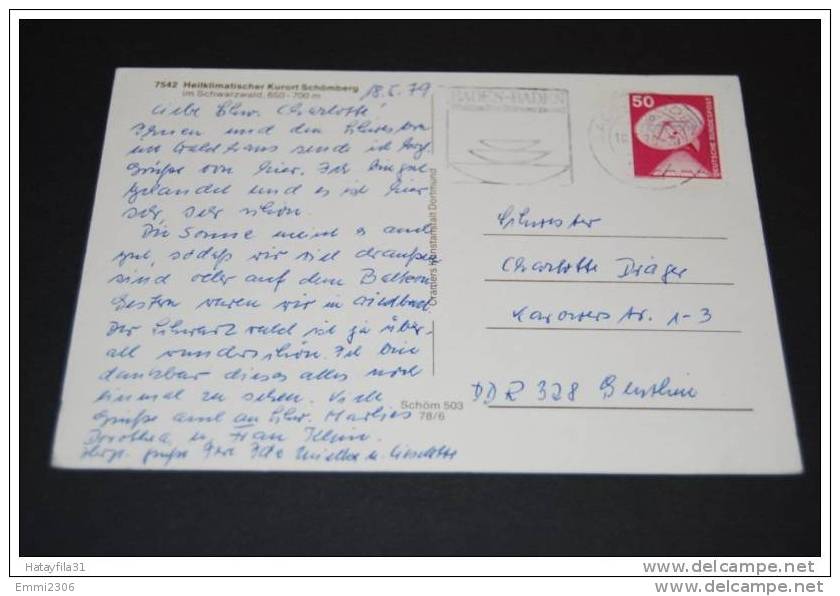 7542 Heilklimatischer Kurort Schömberg
im Schwarzwald, 650 - 700 m
18.5.79
Liebe Schw. Charlotte!
Ihnen und den Schwestern
im Waldhaus sende ich herzl.
Grüße von hier. Ich bin gut
gelandet und es ist hier
sehr, sehr schön.
Die Sonne meint es auch
gut, sodaß wir viel draußen
sind oder auf dem Balkon
Gestern waren wir in Wildbad.
Der Schwarzwald ist ja über-
all wunderschön. Ich bin
dankbar dieses alles noch
einmal zu sehen. Viele
Grüße auch an Schw. Marlies
Dorothea, u. Frau Klein.
Herzl. grüßt Ihre Ida u. Lieselotte
Cramers Kunstanstalt Dortmund
Schöm 503
78/6
BADEN-BADEN
50
DEUTSCHE BUNDESPOST
Schwester
Charlotte Dräger
Karower Str. 1-3
DDR 328 Genthin
Hatayfila31
www.delcampe.net
Emmi2306
www.delcampe.net